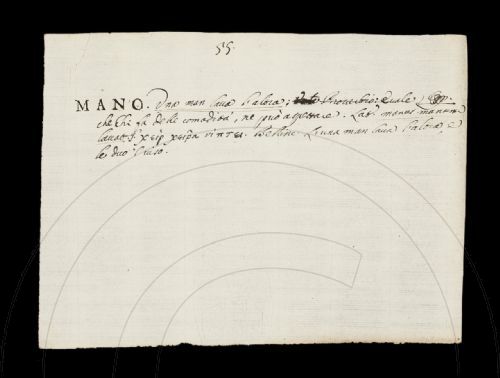 55.
MANO. Una man lava l'altra; Proverbio: Quale
che chi fa delle comodità, ne può aspettare. Lat. manus manum
lavat.
Una man lava l'altra, e
le due il viso.